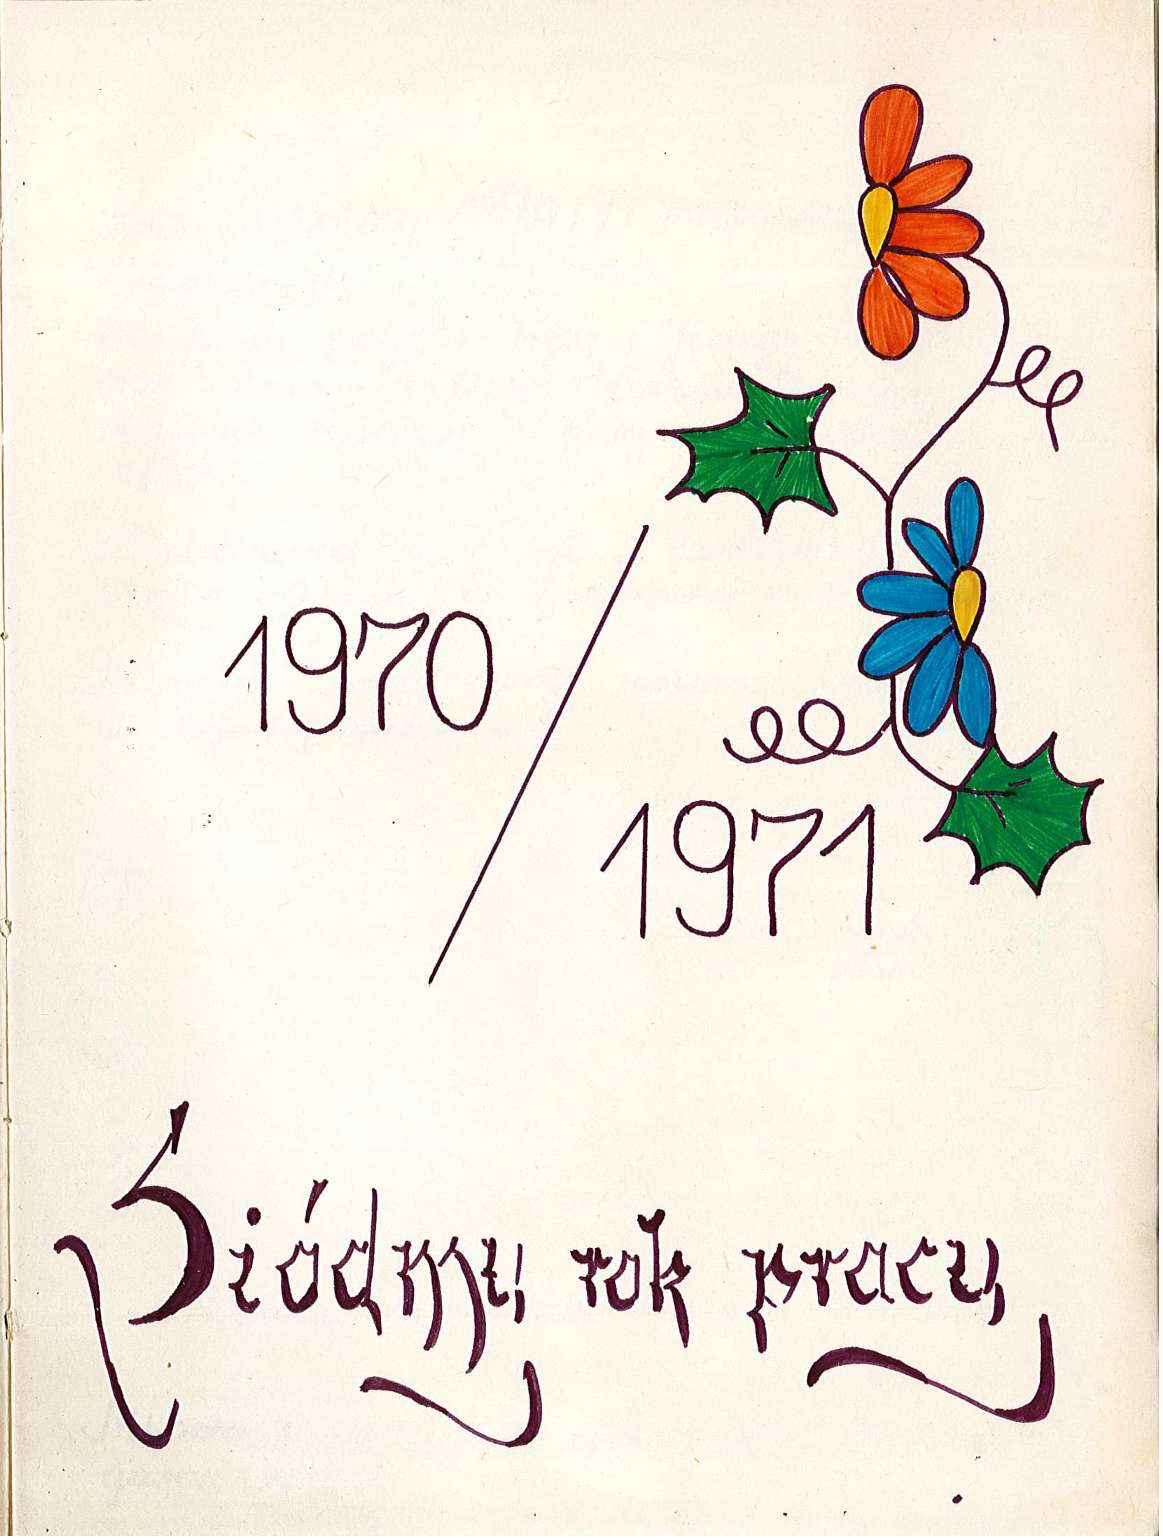 1970/
1971
Siódmy rok pracy